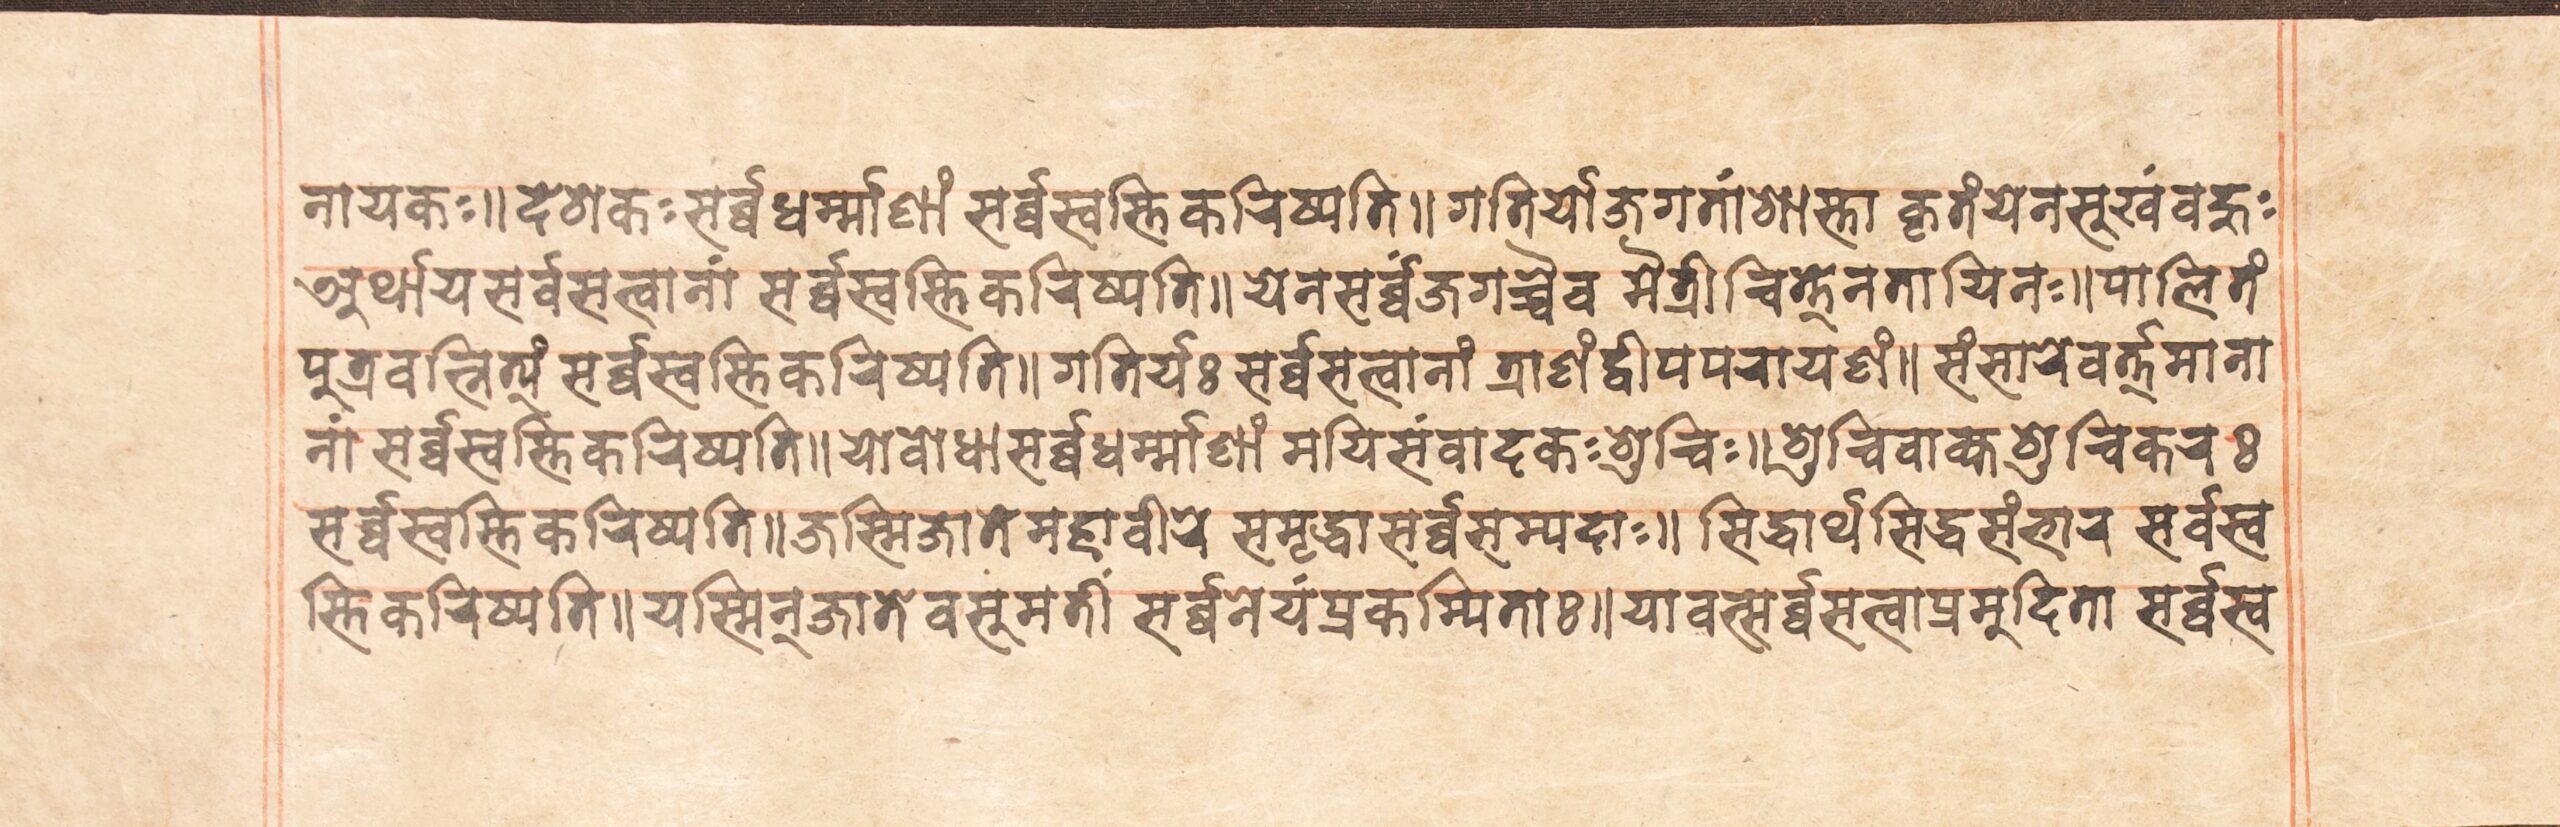 नायकः॥ देशकःसर्ब्बधर्म्माणां सर्ब्बस्वस्तिकरिष्यति॥ गतिर्योजगतांशास्ता कृतंयेनसुखंवहुः
अर्थायसर्वसत्वानां सर्ब्बस्वस्तिकरिष्यति॥ येनसर्ब्बंजगच्चैव मैत्रीचित्तेनतायिनः॥पालितं
पुत्रवन्नित्यं सर्ब्बस्वस्तिकरिष्यति॥ गतिर्यः सर्ब्बसत्वानां त्राणंद्वीपपरायणं॥ संसारेवर्त्तमाना
नां सर्ब्बस्वस्तिकरिष्यति॥ योवोधासर्ब्बधर्म्माणां मयिसंवादकःशुचिः॥शुचिवाक्यशुचिकरः
सर्ब्बस्वस्तिकरिष्यति॥ जस्मिजातेमहावीरे समृद्धासर्ब्बसम्पदाः॥ सिद्धार्थसिद्धसंभार सर्वस्व
स्तिकरिष्यति॥ यस्मिन्जातेवसुमतीं सर्ब्बनेयंप्रकम्पिताः॥यावत्सर्ब्बसत्वाप्रमुदिता सर्ब्बस्व